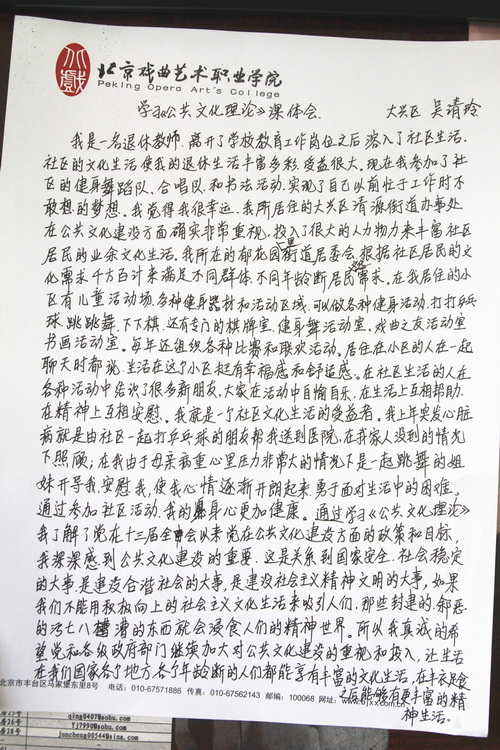 北京戏曲艺术职业学院
Peking Opera Art's College
学习《公共文化理论》课体会
大兴区 吴清玲
我是一名退休教师.离开了学校教育工作岗位之后溶入了社区生活.
社区的文化生活使我的退休生活丰富多彩.受益很大.现在我参加了社
区的健身舞蹈队、合唱队、和书法活动.实现了自己以前忙于工作时不
敢想的梦想。我觉得我很幸运.我所居住的大兴区清源街道办事处
在公共文化建设方面确实非常重视.投入了很大的人力物力来丰富社区
居民的业余文化生活。我所在的郁花园二里街道居委会.根据社区居民的文
化需求千方百计来满足不同群体.不同年龄断居民需求。在我居住的小
区有儿童活动场.各种健身器材和活动区域.可以做各种健身活动.打打乒乓
球.跳跳舞.下下棋.还有专门的棋牌室.健身舞活动室.戏曲之友活动室
书画活动室。每年还组织各种比赛和联欢活动。居住在小区的人在一起
聊天时都说.生活在这个小区挺有幸福感和舒适感。在社区生活的人在
各种活动中结识了很多新朋友.大家在活动中自愉自乐.在生活上互相帮助.
在精神上互相安慰。我就是一个社区文化生活的受益者。我上年突发心脏
病就是由社区一起打乒乓球的朋友帮我送到医院.在我家人没到的情况
下照顾;在我由于母亲病重心里压力非常大的情况下是一起跳舞的姐
妹开导我.安慰我,使我心情逐渐开朗起来.勇于面对生活中的困难。
通过参加社区活动,我的身心更加健康。通过学习《公共文化理论》
我了解了党在十三届全会以来党在公共文化建设方面的政策和目标.
我深深感到公共文化建设的重要.这是关系到国家安全.社会稳定
的大事.是建设合谐社会的大事,是建设社会主义精神文明的大事,如果
我们不能用积极向上的社会主义文化生活来吸引人们.那些封建的.邪恶
的.乱七八糟的东西就会浸食人们的精神世界。所以我真诚的希
望党和各级政府部门继续加大对公共文化建设的重视和投入,让生活
在我们国家各个地方.各个年龄断的人们都能享有丰富的文化生活.在丰衣足食
之后能够有更丰富的精
神生活。
北京市丰台区马家堡东里8号 电话:010-67571886 传真:010-67562143 邮编:100068 网址:www.bjxx.com.cn
25号
qing0407@sohu.com
26号
Yj7990@sohu.com
28号
juncheng00544@sina.com